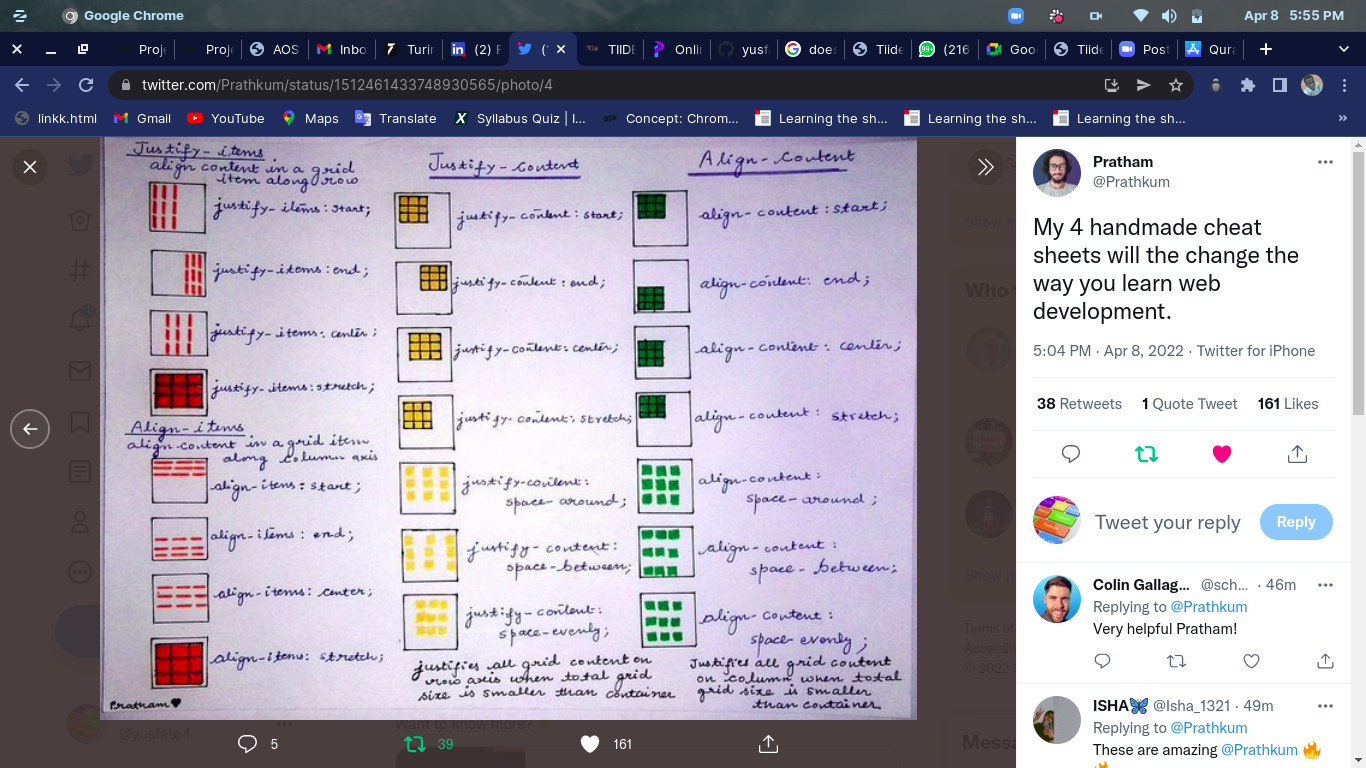 Google Chrome
Apr 8 5:55 PM
Proje
Proje
AOS
Inbo
Turin
(2) F
(1
TIIDE
Onlin
yusf
does
Tiide
(216
Goo
Tiide
Post
Qura
twitter.com/Prathkum/status/1512461433748930565/photo/4
linkk.html
Gmail
YouTube
Maps
Translate
Syllabus Quiz | I...
Concept: Chrom...
Learning the sh...
Learning the sh...
Learning the sh...
Justify-items
align content in a grid
item along row
justify-items: start;
justify-items: end;
justify-items: center;
justify-items: stretch;
Align-items
align content in a grid item
along column axis
align-items: start;
align-items: end;
align-items: center;
align-items: stretch;
Pratham
Justify-Content
justify-content: start;
justify-content: end;
justify-content: center;
justify-content: stretch;
justify-content:
space-around;
justify-content:
space-between;
justify-content:
space-evenly;
justifies all grid content on
row axis when total grid
size is smaller than container
Align-Content
align-content: start;
align-content: end;
align-content: center;
align-content: stretch;
align-content:
space-around;
align-content:
space-between;
align-content:
space-evenly;
Justifies all grid content
on column when total
grid size is smaller
than container
@yusfate4
Want to know more?
5
39
161
Pratham
@Prathkum
My 4 handmade cheat
sheets will the change the
way you learn web
development.
5:04 PM · Apr 8, 2022 · Twitter for iPhone
38 Retweets 1 Quote Tweet 161 Likes
Tweet your reply
Reply
Colin Gallag... @sch... · 46m
Replying to @Prathkum
Very helpful Pratham!
ISHA🦋 @Isha_1321 · 49m
Replying to @Prathkum
These are amazing @Prathkum 🔥